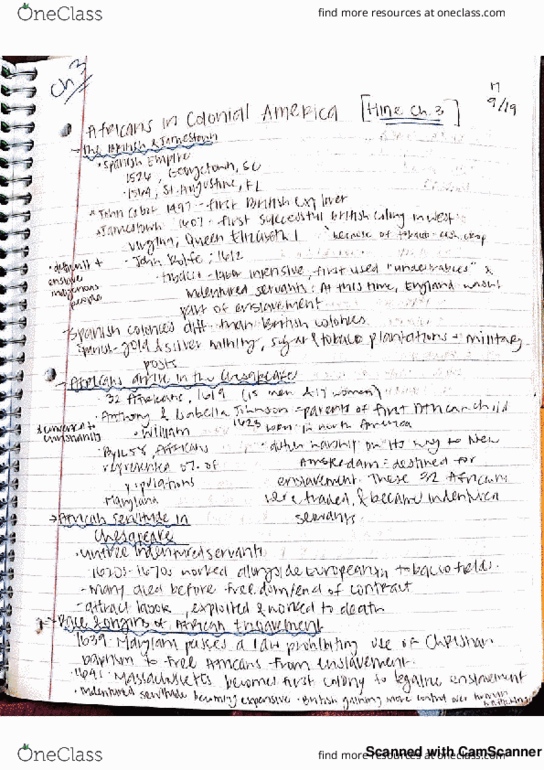 OneClass
find more resources at oneclass.com
Ch 3
Africans in Colonial America [Hine Ch. 3]
9/19
The British & Jamestown
• Spanish Empire
1526, Georgetown, SC
1564, St. Augustine, FL
John Cabot 1497 - first British explorer
Jamestown 1607 - first successful British colony in west
Virginia, Queen Elizabeth I
because of tobacco cash crop
• John Rolfe, 1612
enslave
indigenous
people
labor intensive, first used "undesirables" &
indentured servants. At this time, England wasn't
part of enslavement
Spanish colonies diff. than British colonies
Spanish - gold & silver mining, sugar & tobacco plantations + military
posts
Africans arrive in the Chesapeake
32 Africans, 1619 (15 men & 17 women)
Anthony & Isabella Johnson = parents of first African child
• William 1623 born in north America
converted to
Christianity
By 1658, Africans
represented % of
populations
Maryland
dutch warship on its way to New
Amsterdam = destined for
enslavement. These 32 Africans
were traded, & became indentured
servants.
African Servitude in
Chesapeake
indentured servants
1620s-1670s worked alongside Europeans in tobacco fields.
- many died before freedom/end of contract
labor, exploited & worked to death
Race & Origins of African Enslavement
1639 - Maryland passes a law prohibiting use of Christian
baptism to free Africans from enslavement.
1641 - Massachusetts becomes first colony to legalize enslavement
• indentured servitude becoming expensive • British gaining more control over human
OneClass
find more resources at oneclass.com
Scanned with CamScanner